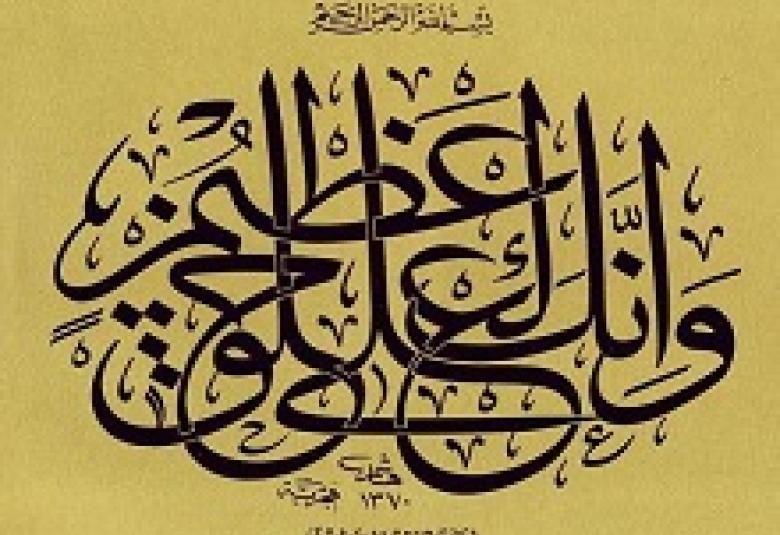 بسم الله الرحمن الرحيم
وَإِنَّكَ لَعَلَىٰ خُلُقٍ عَظِيمٍ
١٣٧٠